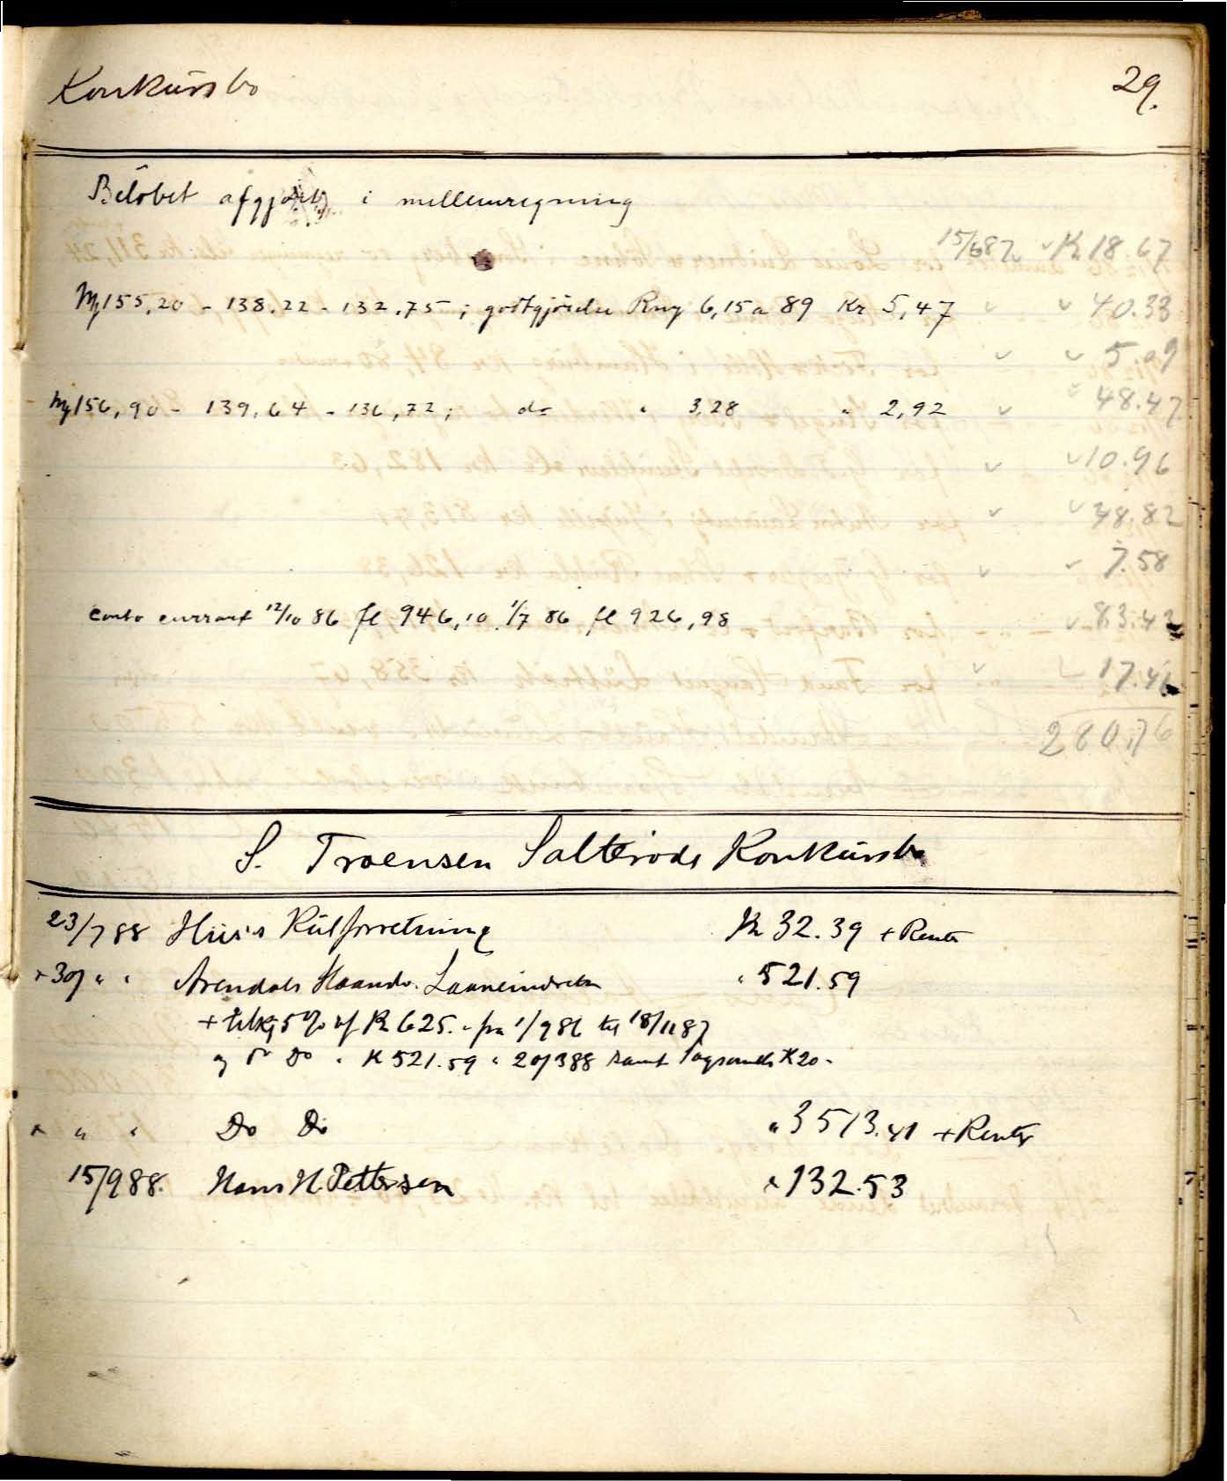 Konkursbo 29.
Beløbet afgjort i mellemregning
15/6 87 Kr 18.67
155,20 - 138.22 - 132.75; godtgjørelse 6,15 a 89 Kr 5,47 40.33
5.09
156,90 - 139,64 - 136,72; do " 3,28 " 2,92 48.47
10.96
38.82
7.58
conto currant 12/10 86 fl 946,10 1/7 86 fl 926,98 83.42
17.42
280,76
S. Troensen Salterøds Konkursbo
23/7 88 Huus Kulforretning Kr 32.39 + Renter
" 30/7 " " Arendals Haandv. Laaneindretn " 521.59
+ 5% af Kr 625. - fra 1/9 86 til 18/11 87
og 5% Do " K 521.59 " 20/3 88 samt Sagsomk K 20 -
" " " Do Do " 3513.41 + Renter
15/9 88. Hans N. Pettersen " 132.53